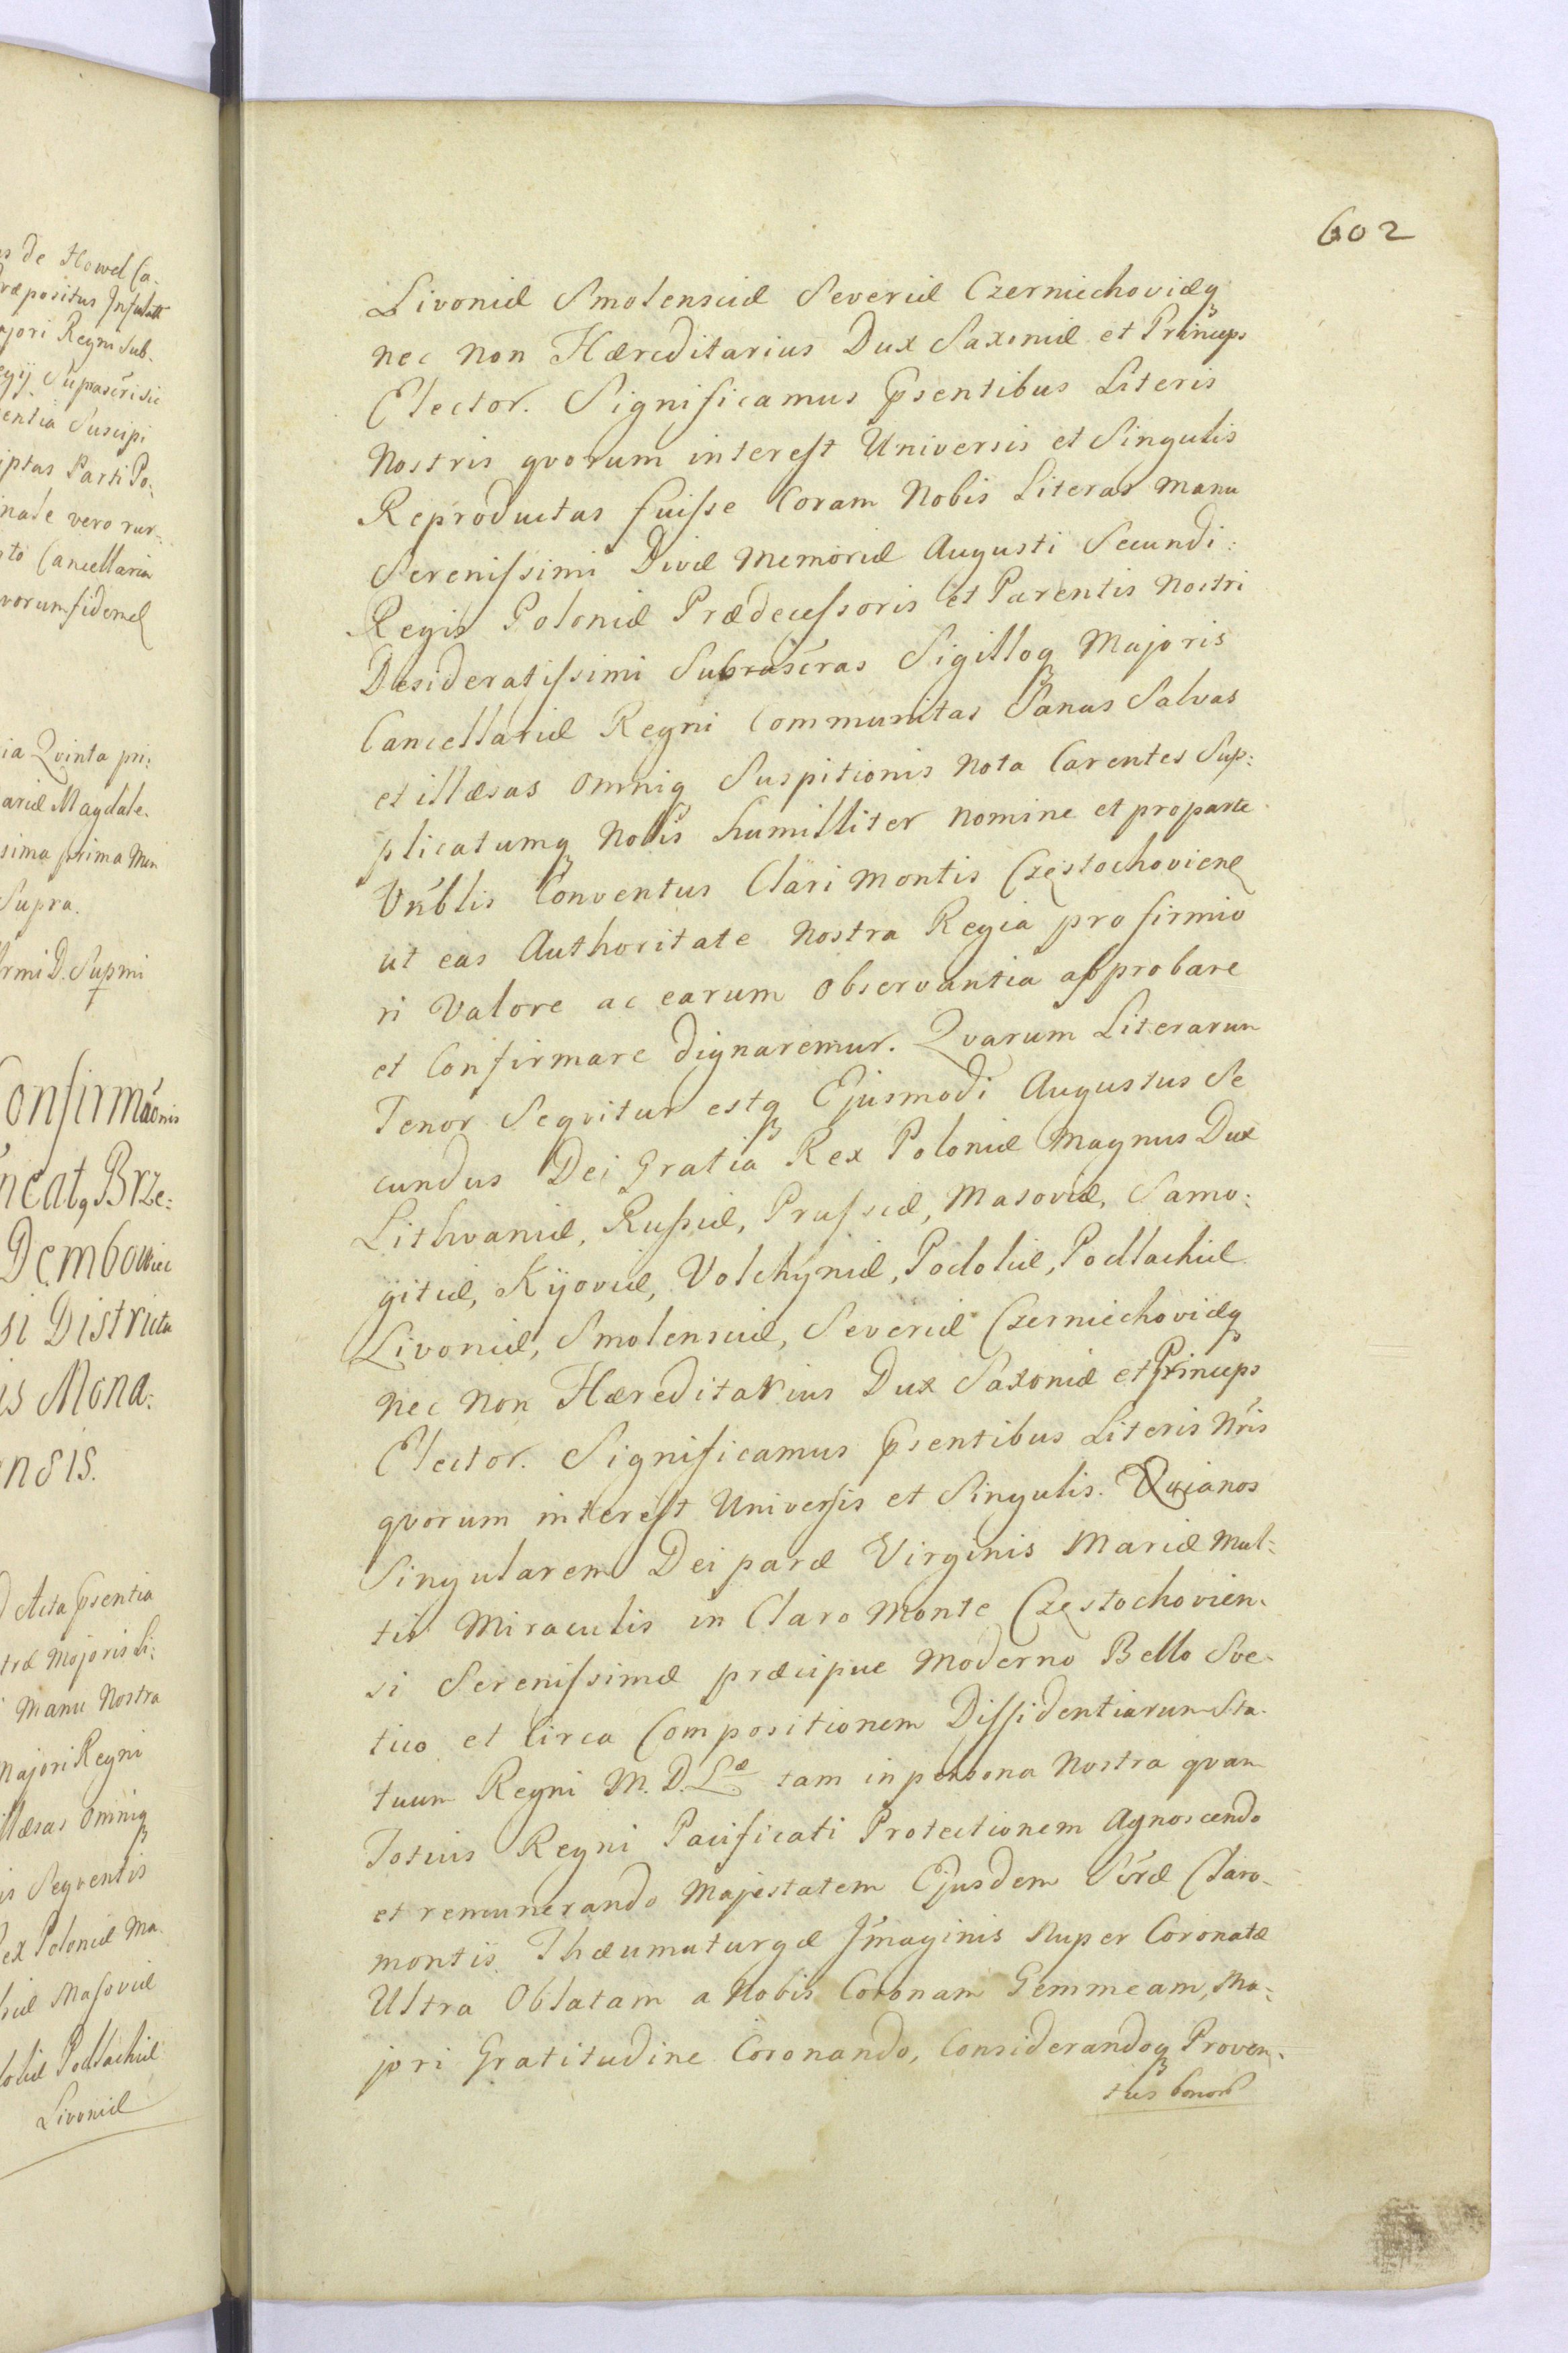 s de Howel Ca-
Præpositus Infulatt
ajori Regni Sub-
egij Suprascrisic
entia Suscipi
iptas Parti Po:
inale vero rur:
sto Cancellaria
vorum fidem
ia Qvinta pri:
ariæ Magdale.
sima prima Men
Supra.
Irmi D. Supmi
Confirmaonis
neatq Brze:
Dembowiec
si Districtu
is Mona:
ensis.
d Acta Psentia
træ Majoris Li:
i Manu Nostra
Majori Regni
illæsas omniq
is Seqventis
Rex Poloniæ Ma.
hiæ Masoviæ
doliæ Podlachiæ
Livoniæ
602
Livoniæ Smolensciæ Severiæ Czerniechoviæq
nec non Hæreditarius Dux Saxoniæ et Princeps
Elector. Significamus Psentibus Literis
Nostris qvorum interest Universis et Singulis
Reproductas fuisse Coram Nobis Literas manu
Serenissimi Divæ Memoriæ Augusti Secundi:
Regis Poloniæ Prædecessoris et Parentis Nostri
Desideratissimi Subrascras Sigilloq Majoris
Cancellariæ Regni Communitas Sanas Salvas
et illæsas omniq Suspitionis Nota Carentes Sup:
plicatumq Nobis humilliter nomine et proparte
Vnblis Conventus Clari Montis Częstochovien
ut eas Authoritate Nostra Regia pro firmio
ri Valore ac earum Observantia approbare
et Confirmare dignaremur. Qvarum Literarum
Tenor Seqvitur estq Ejusmodi Augustus Se
cundus Dei Gratia Rex Poloniæ Magnus Dux
Lithvaniæ, Russiæ, Prussiæ, Masoviæ, Samo:
gitiæ, Kijoviæ, Volchyniæ, Podoliæ, Podlachiæ
Livoniæ, Smolensciæ, Severiæ Czerniechoviæq
nec non Hæreditarius Dux Saxoniæ et Princeps
Elector. Significamus Psentibus Literis Nris
qvorum interest Universis et Singulis. Quianos
Singularem Dei paræ Virginis Mariæ Mul:
tis Miraculis in Claro Monte Częstochovien.
si Serenissimæ præcipue Moderno Bello Sve-
tico et Circa Compositionem Dissidentiarum Sta-
tuum Regni M. D. Læ tam in persona Nostra qvam
Totius Regni Pacificati Protectionem Agnoscendo
et remunerando Majestatem Ejusdem Scræ Claro-
montis Thæumaturgæ Imaginis Nuper Coronatæ
Ultra Oblatam a Nobis Coronam Gemmeam, Ma:
jori Gratitudine Coronando, Considerandoq Proven:
tus bonorum